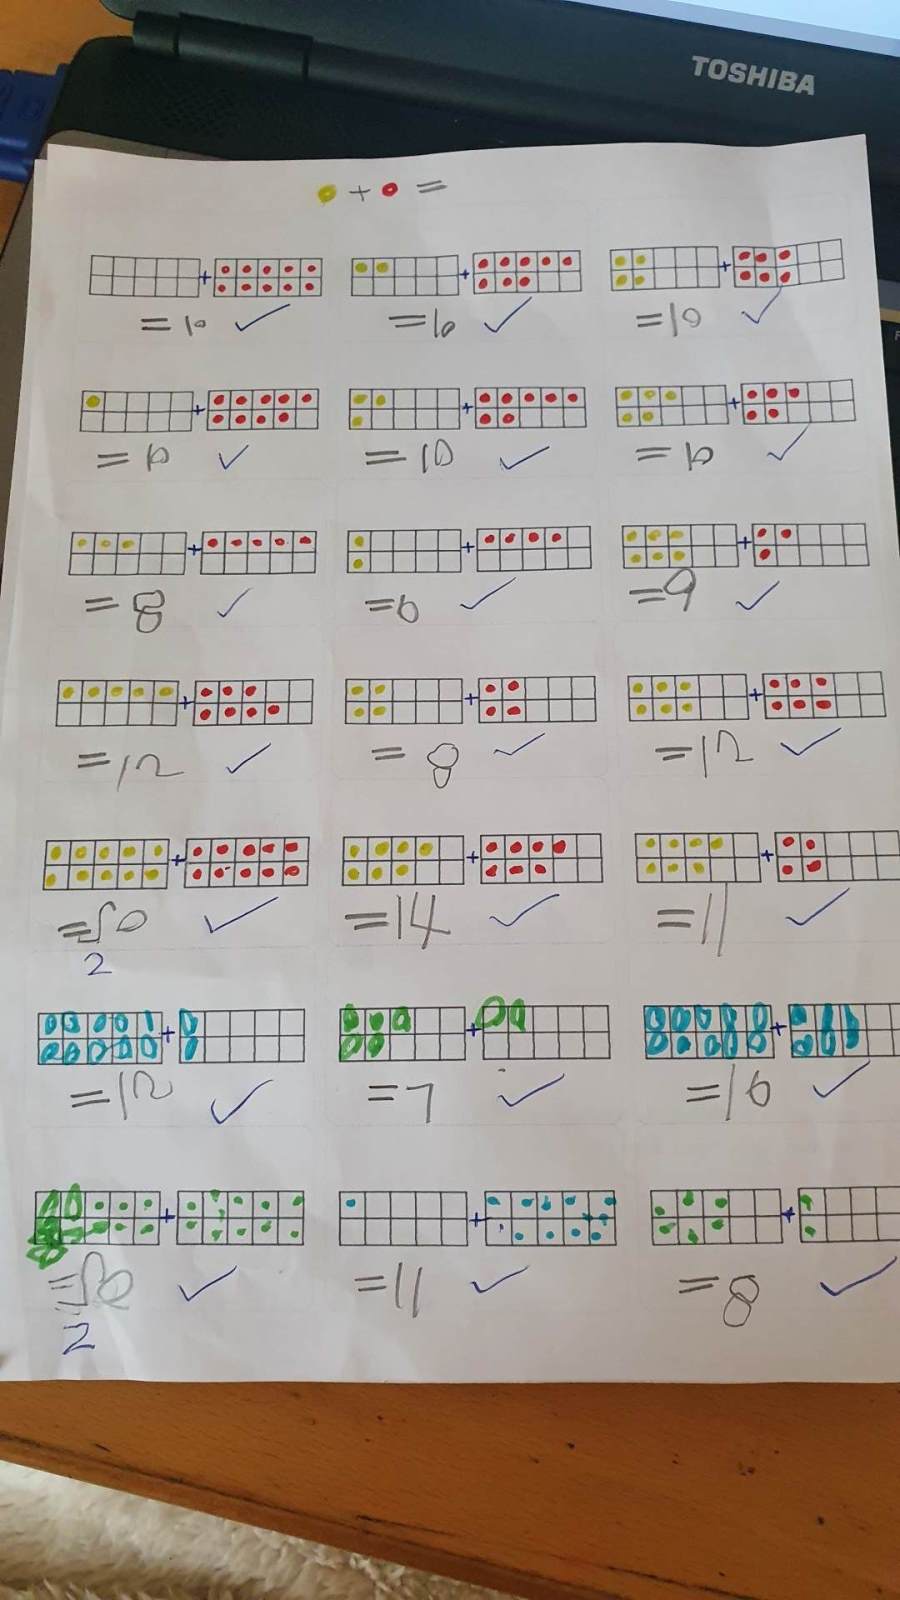 TOSHIBA
+ =
+ + +
=10 ✓ =10 ✓ =10 ✓
+ + +
=9 ✓ =10 ✓ =9 ✓
+ + +
=8 ✓ =6 ✓ =9 ✓
+ + +
=12 ✓ =8 ✓ =12 ✓
+ + +
=50 ✓ =14 ✓ =11 ✓
2
+ + +
=12 ✓ =7 ✓ =16 ✓
+ + +
=50 ✓ =11 ✓ =8 ✓
2